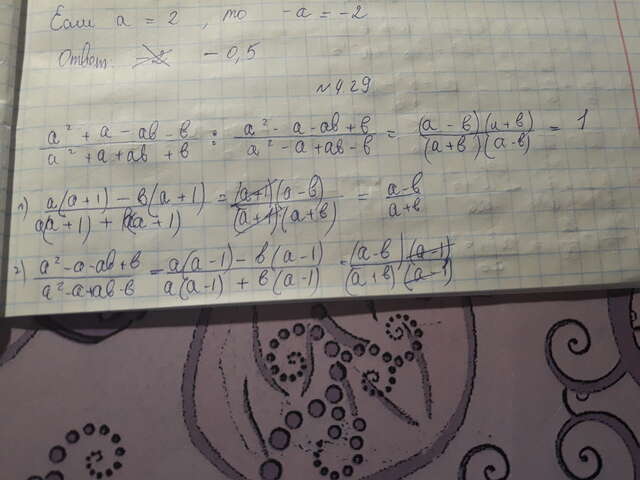 Если a = 2, то -a = -2
Ответ. -0,5
№429
\frac{a² + a - ab - b}{a² + a + ab + b} : \frac{a² - a - ab + b}{a² - a + ab - b} = \frac{(a - b)(a + b)}{(a + b)(a - b)} = 1
1) \frac{a(a + 1) - b(a + 1)}{a(a + 1) + b(a + 1)} = \frac{(a+1)(a - b)}{(a+1)(a + b)} = \frac{a - b}{a + b}
2) \frac{a² - a - ab + b}{a² - a + ab - b} = \frac{a(a - 1) - b(a - 1)}{a(a - 1) + b(a - 1)} = \frac{(a - b)(a - 1)}{(a + b)(a - 1)}